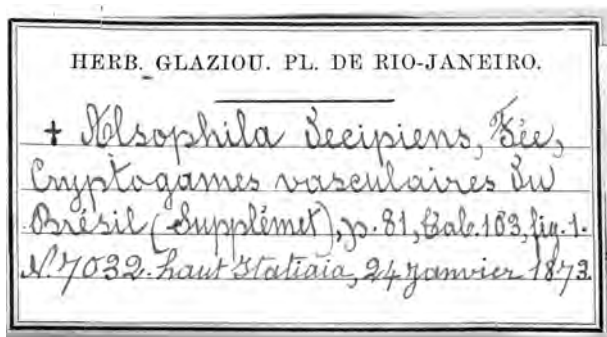 HERB. GLAZIOU. PL. DE RIO-JANEIRO.
+ Alsophila decipiens, Fée,
Cryptogames vasculaires du
Brésil (Supplémet), p. 81, Tab. 103, fig. 1.
N. 7032. haut Itatiaia, 24 Janvier 1873.